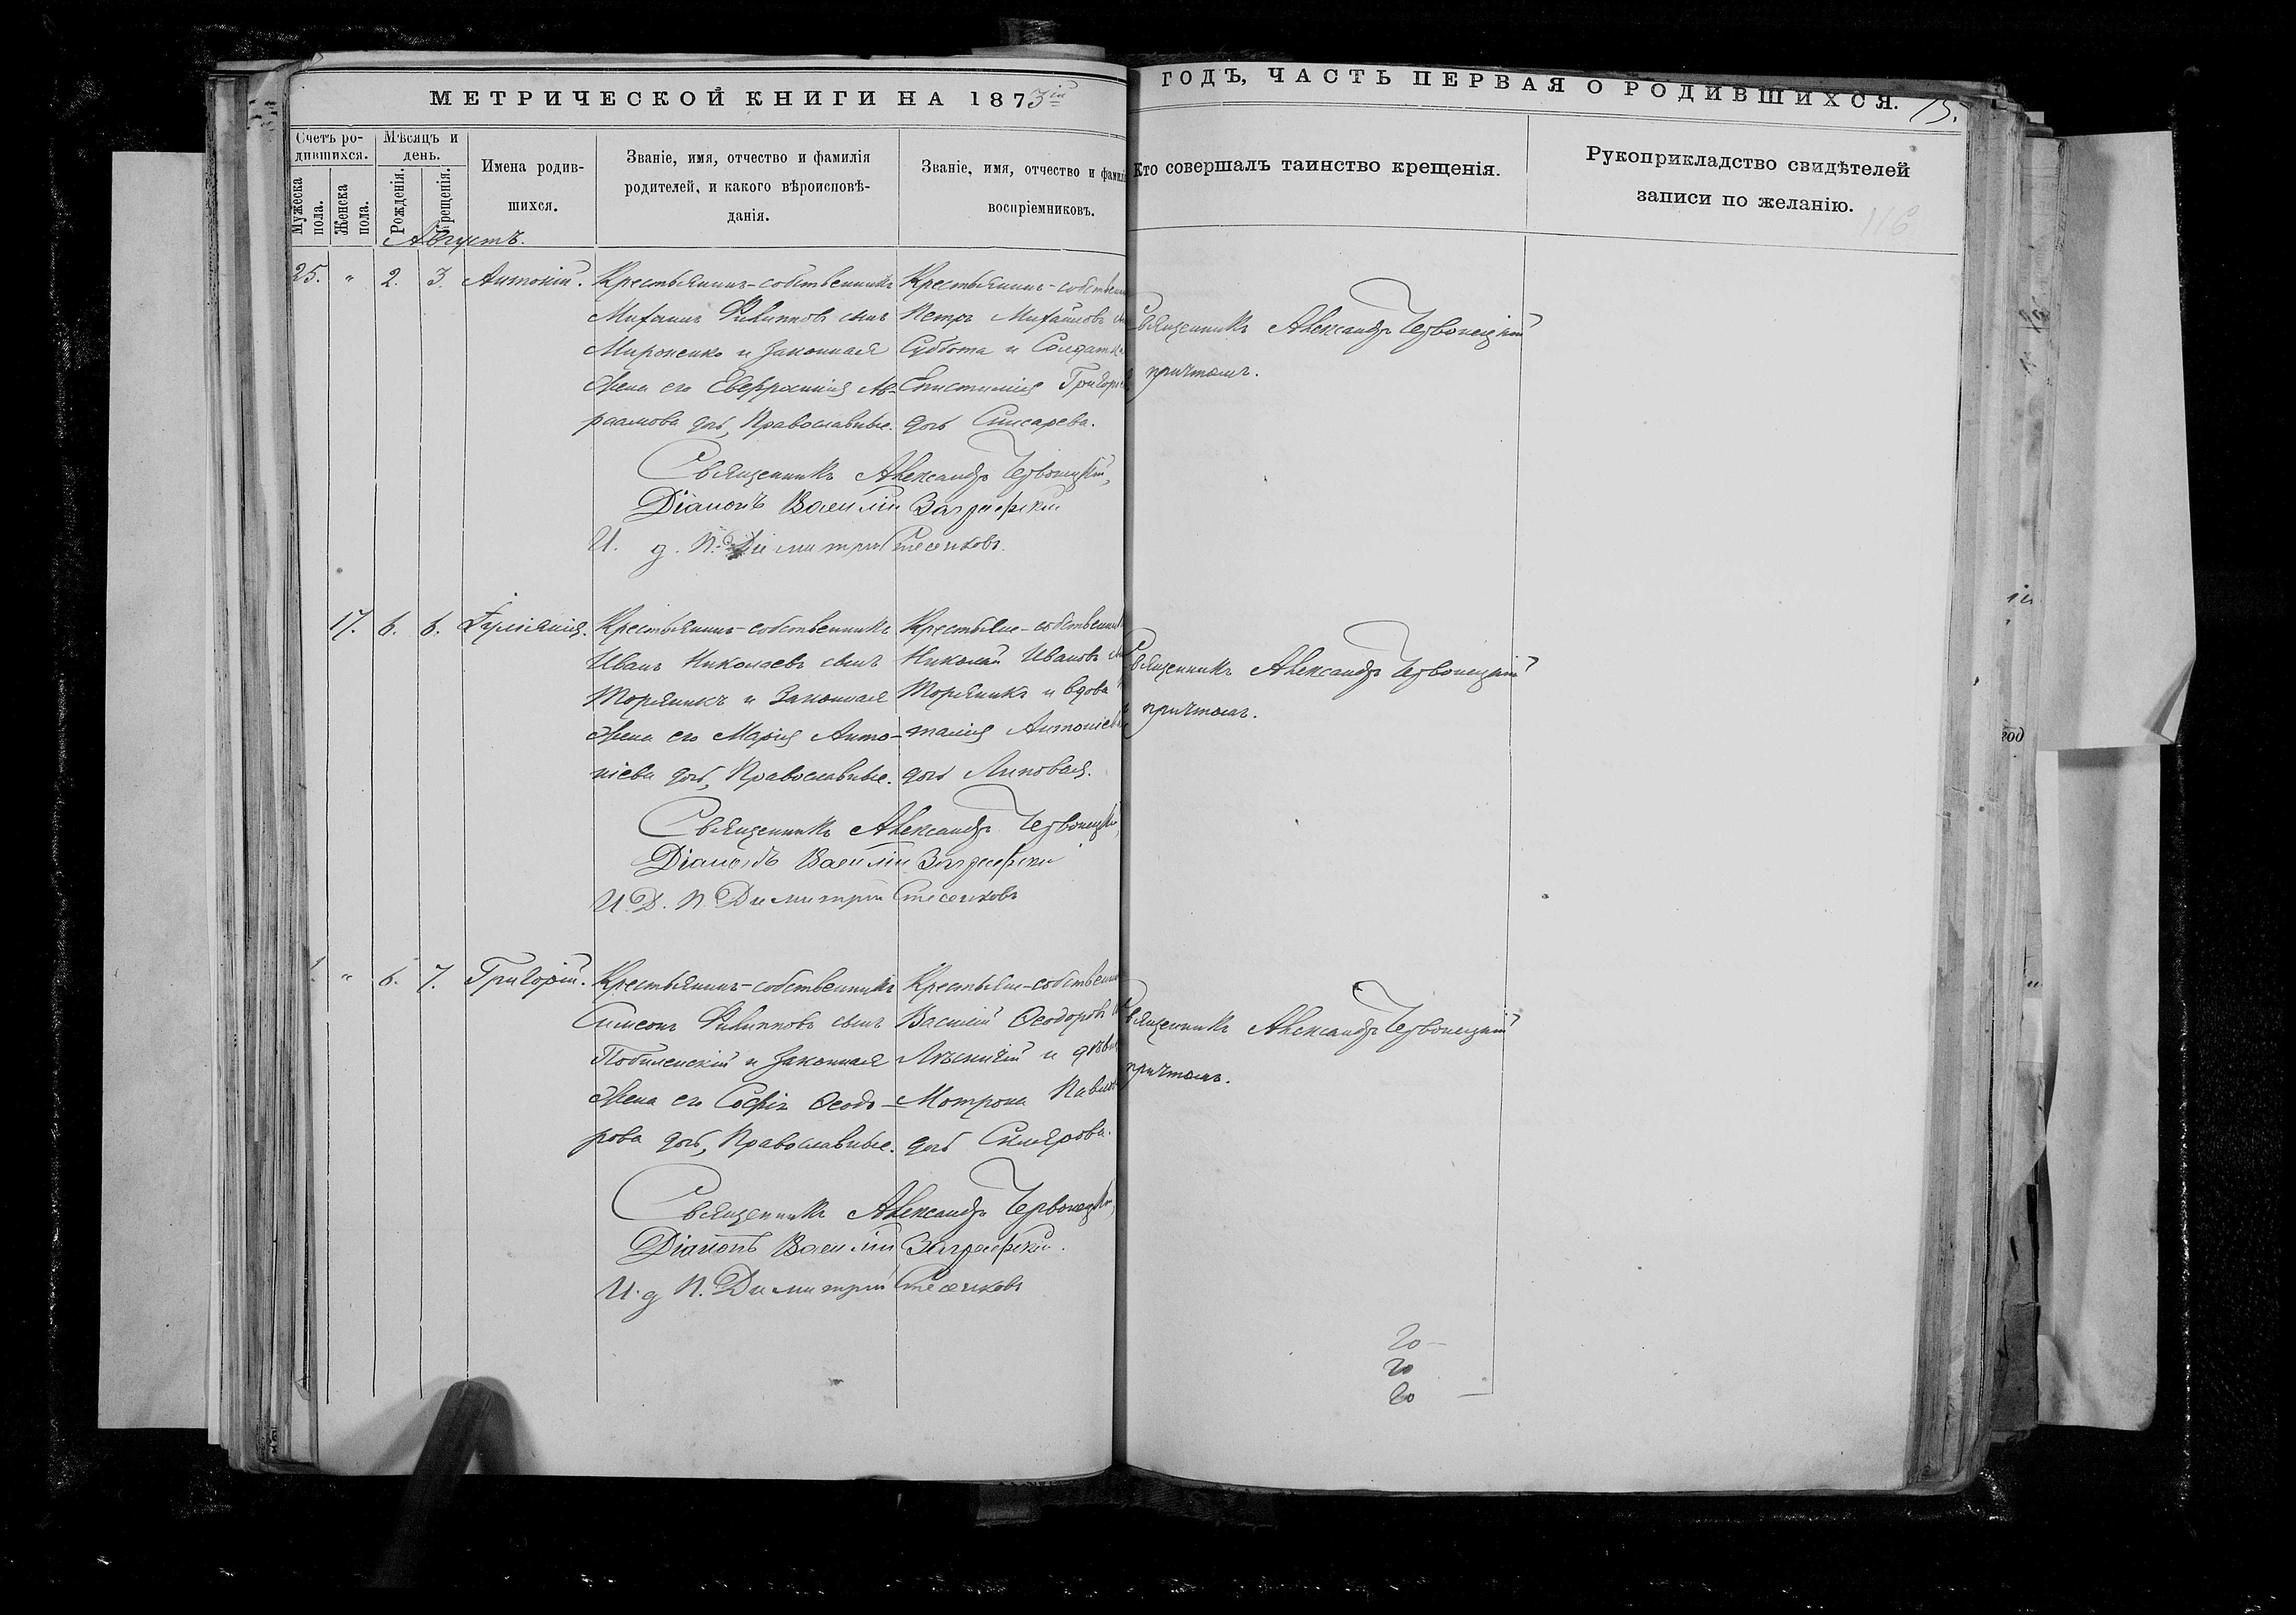 МЕТРИЧЕСКОЙ КНИГИ НА 1873ій
ГОДЪ, ЧАСТЬ ПЕРВАЯ О РОДИВШИХСЯ.
15.
Счетъ ро-
дившихся.
Мѣсяцъ и
день.
Мужеска
пола.
Женска
пола.
Рожденія.
Крещенія.
Имена родив-
шихся.
Званіе, имя, отчество и фамилія
родителей, и какого вѣроисповѣ-
данія.
Званіе, имя, отчество и фамилі
воспріемниковъ.
Кто совершалъ таинство крещенія.
Рукоприкладство свидѣтелей
записи по желанію.
116
Августъ.
25. " 2. 3. Антоній.
Крестьянинъ-собственникъ
Михаилъ Филипповъ сынъ
Мироненко и законная
жена его Евфросинія Ав-
раамова дочь, Православные.
Крестьянинъ-собствен
Петръ Михайловъ
Суббота и Солдатка
Епистимія Григорі
дочь Слисарева.
Священникъ Александръ Червонецкій
причтомъ.
Священникъ Александръ Червонецкій,
Діаконъ Василій
И. д. П. Димитрій
17. 6. 6. Іуліанія.
Крестьянинъ-собственникъ
Иванъ Николаевъ сынъ
Торяникъ и законная
жена его Марія Анто-
ніева дочь, Православные.
Крестьяне-собственни
Николай Ивановъ
Торяникъ и вдова
талія Антоніев
дочь Липовая.
Священникъ Александръ Червонецкій
причтомъ.
Священникъ Александръ Червонецкій,
Діаконъ Василій
И. Д. П. Димитрій
" 6. 7. Григорій.
Крестьянинъ-собственникъ
Симеонъ Филипповъ сынъ
и законная
жена его Софія Ѳеодо-
рова дочь, Православные.
Крестьяне-собствен
Василій Ѳеодоровъ
Лѣсничій и дѣви
Мотрона Павлов
дочь Склярова.
Священникъ Александръ Червонецкій
причтомъ.
Священникъ Александръ Червонецкій,
Діаконъ Василій
И. д П. Димитрій
20
20
20